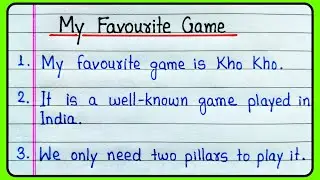 My Favourite Game
1. My favourite game is Kho Kho.
2. It is a well-known game played in
India.
3. We only need two pillars to play it.